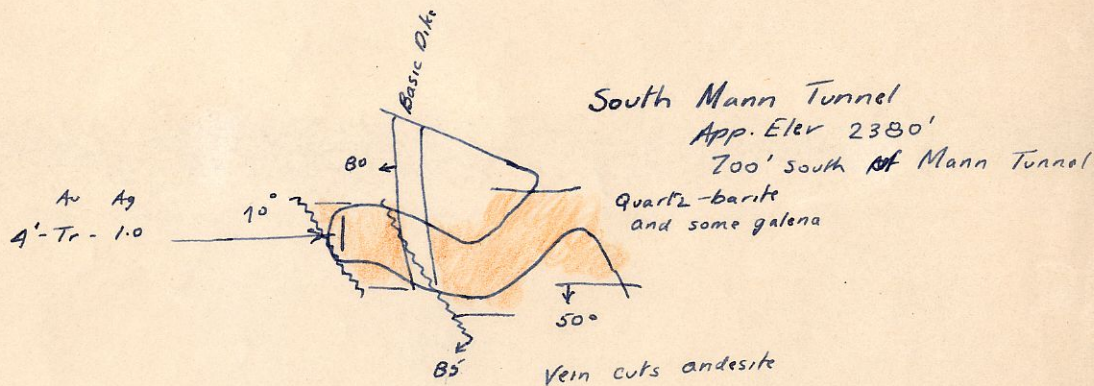 Basic Dike
South Mann Tunnel
App. Elev 2380'
700' south of Mann Tunnel
80
Quartz-barite
and some galena
Au Ag
70°
4'-Tr-1.0
50°
85
Vein cuts andesite